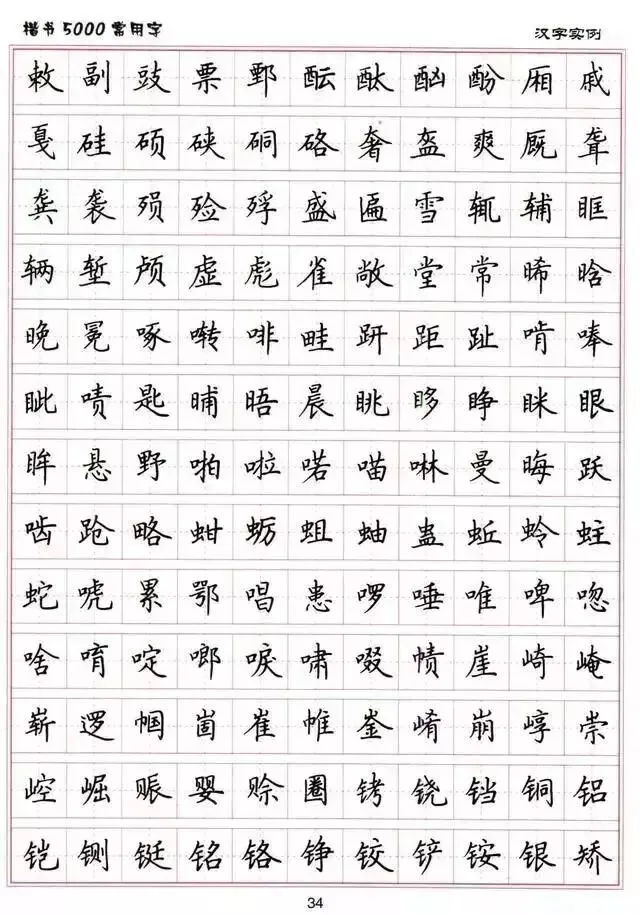 楷书5000常用字 汉字实例
敕 副 豉 票 鄄 酝 酞 酗 酚 厢 戚
戛 硅 硕 硖 硐 硌 奢 盔 爽 厩 聋
龚 袭 殒 殓 殍 盛 匾 雪 辄 辅 眶
辆 堑 颅 虚 彪 雀 敞 堂 常 晞 晗
晚 冕 啄 啭 啡 畦 趼 距 趾 啃 唪
眦 啧 匙 晡 晤 晨 眺 眵 睁 眯 眼
眸 悬 野 啪 啦 喏 喵 啉 曼 晦 跃
啮 跄 略 蚶 蛎 蛆 蚰 蛊 蚯 蛉 蛀
蛇 唬 累 鄂 唱 患 啰 唾 唯 啤 唿
啥 唷 啶 啷 唳 啸 啜 帻 崖 崎 崦
崭 逻 帼 崮 崔 帷 崟 崤 崩 崞 崇
崆 崛 赈 婴 赊 圈 铐 铙 铛 铜 铝
铠 铡 铤 铭 铬 铮 铰 铲 铵 银 矫
34